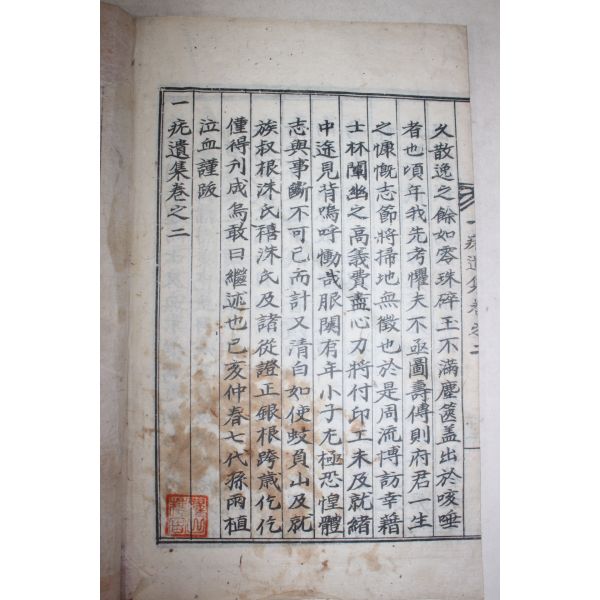 久散逸之餘如零珠碎玉不滿塵篋盖出於咳唾
者也頃年我先考懼夫不亟圖壽傳則府君一生
之慷慨志節將掃地無徵也於是周流博訪幸藉
士林闡幽之高義費盡心力將付印工未及就緒
中途見背嗚呼慟哉服闋有年小子尤極恐惶體
志與事斷不可已而計又清白如使蚊負山及就
族叔根洙氏禧洙氏及諸從證正銀根跨歲仡仡
僅得刋成烏敢曰繼述也己亥仲春七代孫兩植
泣血謹跋
一疣遺集卷之二